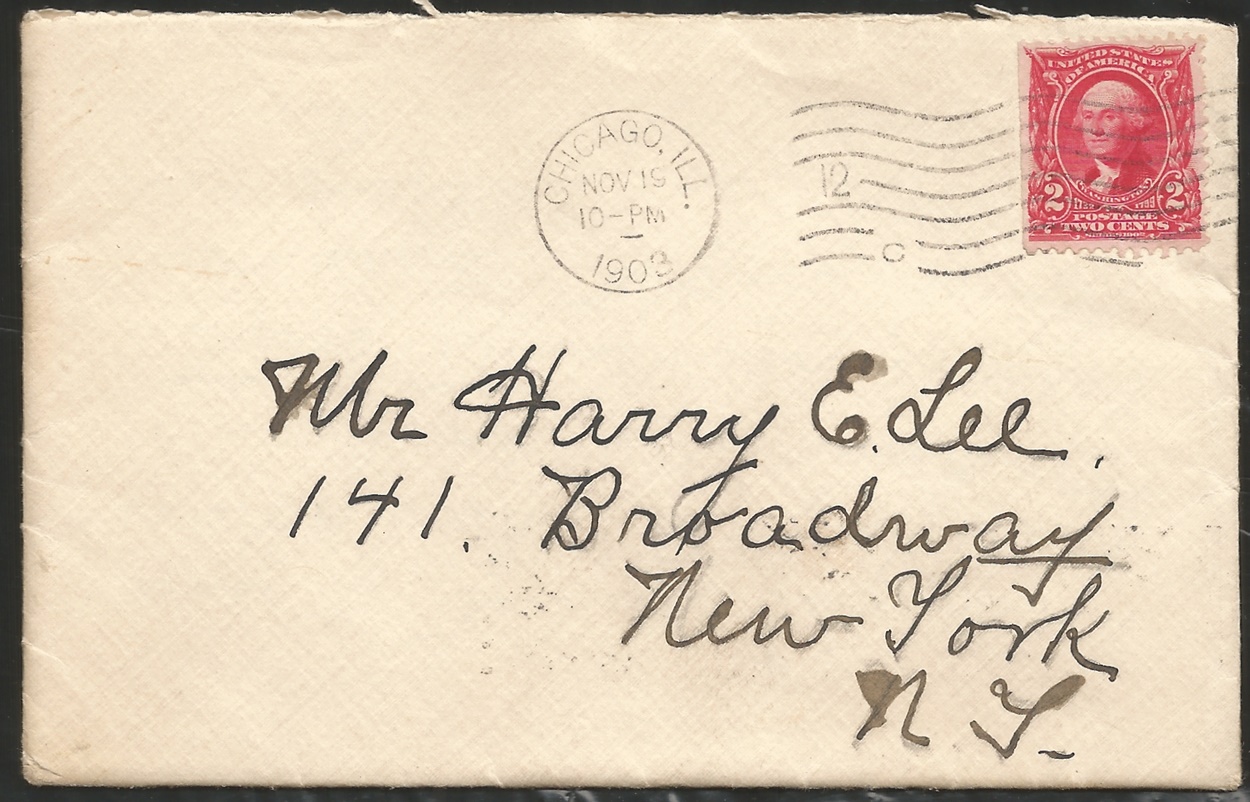 UNITED STATES
OF AMERICA
WASHINGTON
1732 1799
2 2
POSTAGE
TWO CENTS
CHICAGO, ILL.
NOV 19
10-PM
1903
12
C
Mr Harry E. Lee.
141. Broadway
New York
N Y.